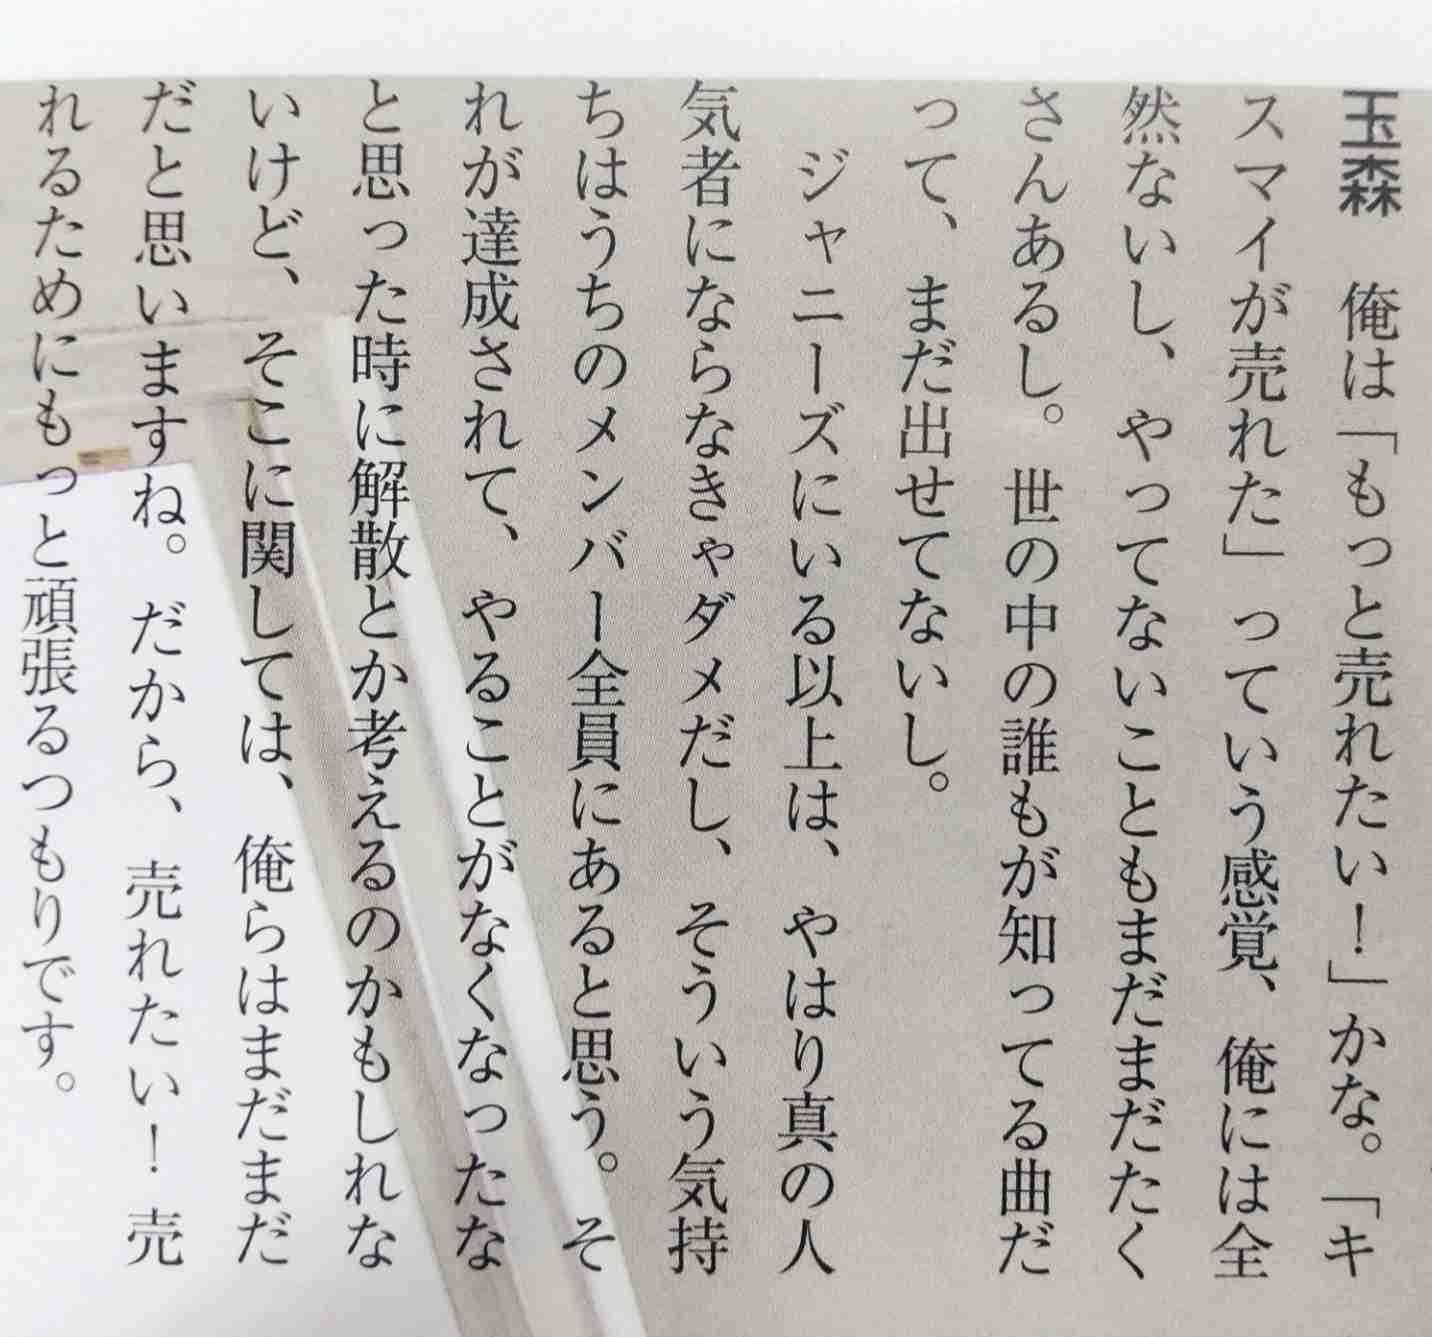 玉森　俺は「もっと売れたい！」かな。「キ
スマイが売れた」っていう感覚、俺には全
然ないし、やってないこともまだまだたく
さんあるし。世の中の誰もが知ってる曲だ
って、まだ出せてないし。
　ジャニーズにいる以上は、やはり真の人
気者にならなきゃダメだし、そういう気持
ちはうちのメンバー全員にあると思う。そ
れが達成されて、やることがなくなったな
と思った時に解散とか考えるのかもしれな
いけど、そこに関しては、俺らはまだまだ
だと思いますね。だから、売れたい！売
れるためにもっと頑張るつもりです。